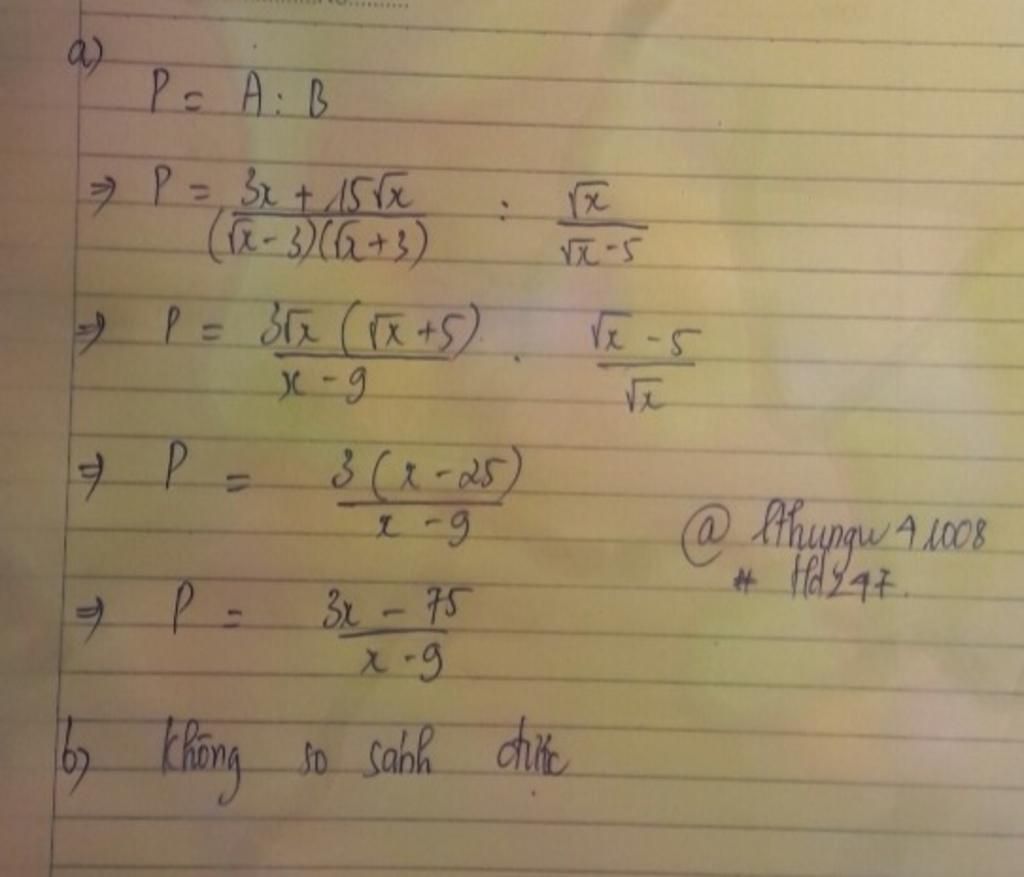 a)
P = A : B
⇒ P = \frac{3x + 15√x}{(√x - 3)(√x + 3)} : \frac{√x}{√x - 5}
⇒ P = \frac{3√x (√x + 5)}{x - 9} . \frac{√x - 5}{√x}
⇒ P = \frac{3(x - 25)}{x - 9}
@ lthungw41008
# Hd247.
⇒ P = \frac{3x - 75}{x - 9}
b) không so sánh được